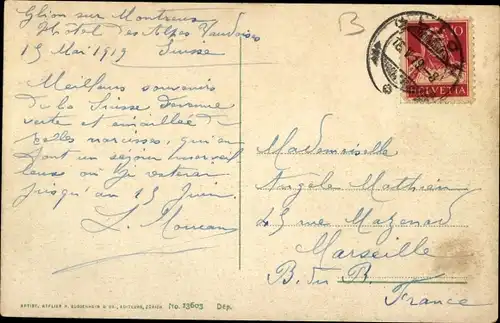 Glion sur Montreux
Hôtel des Alpes Vaudoises
15 Mai 1919 Suisse
Meilleurs souvenirs
de la Suisse devenue
verte et émaillée de
belles narcisses, qui en
font un séjour merveil
leux où je resterai
jusqu'au 15 Juin.
L. Moureau
B
10
HELVETIA
Mademoiselle
Angèle Mathieu
43 rue Mazenod
Marseille
B. du R.
France
ARTIST. ATELIER H. GUGGENHEIM & Co., EDITEURS, ZÜRICH No. 13605 Dép.